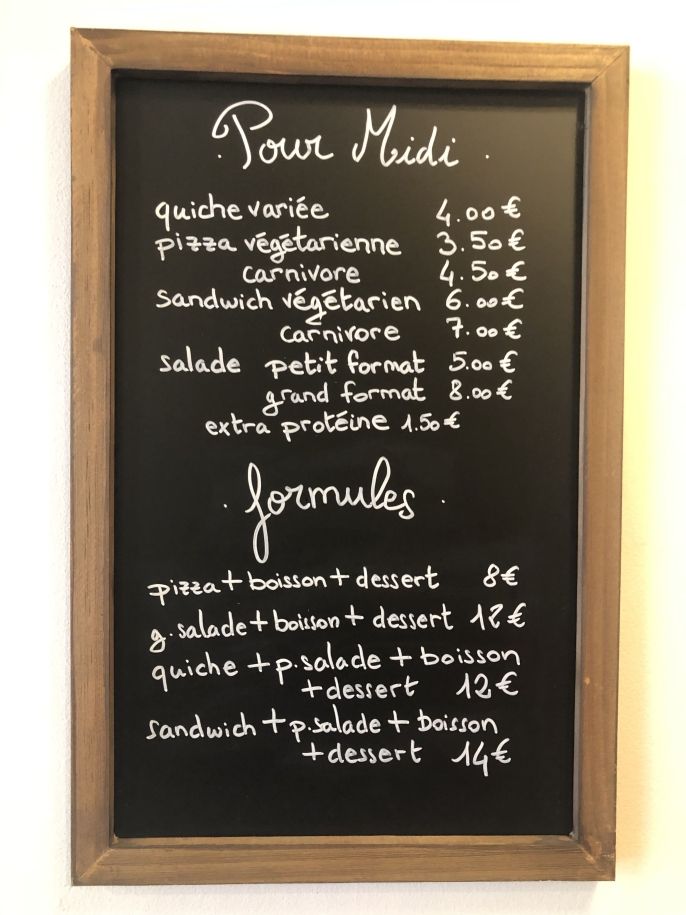 . Pour Midi .
quiche variée 4.00 €
pizza végétarienne 3.50 €
carnivore 4.50 €
sandwich végétarien 6.00 €
carnivore 7.00 €
salade petit format 5.00 €
grand format 8.00 €
extra protéine 1.50 €
. formules .
pizza + boisson + dessert 8 €
g. salade + boisson + dessert 12 €
quiche + p. salade + boisson
+ dessert 12 €
sandwich + p. salade + boisson
+ dessert 14 €